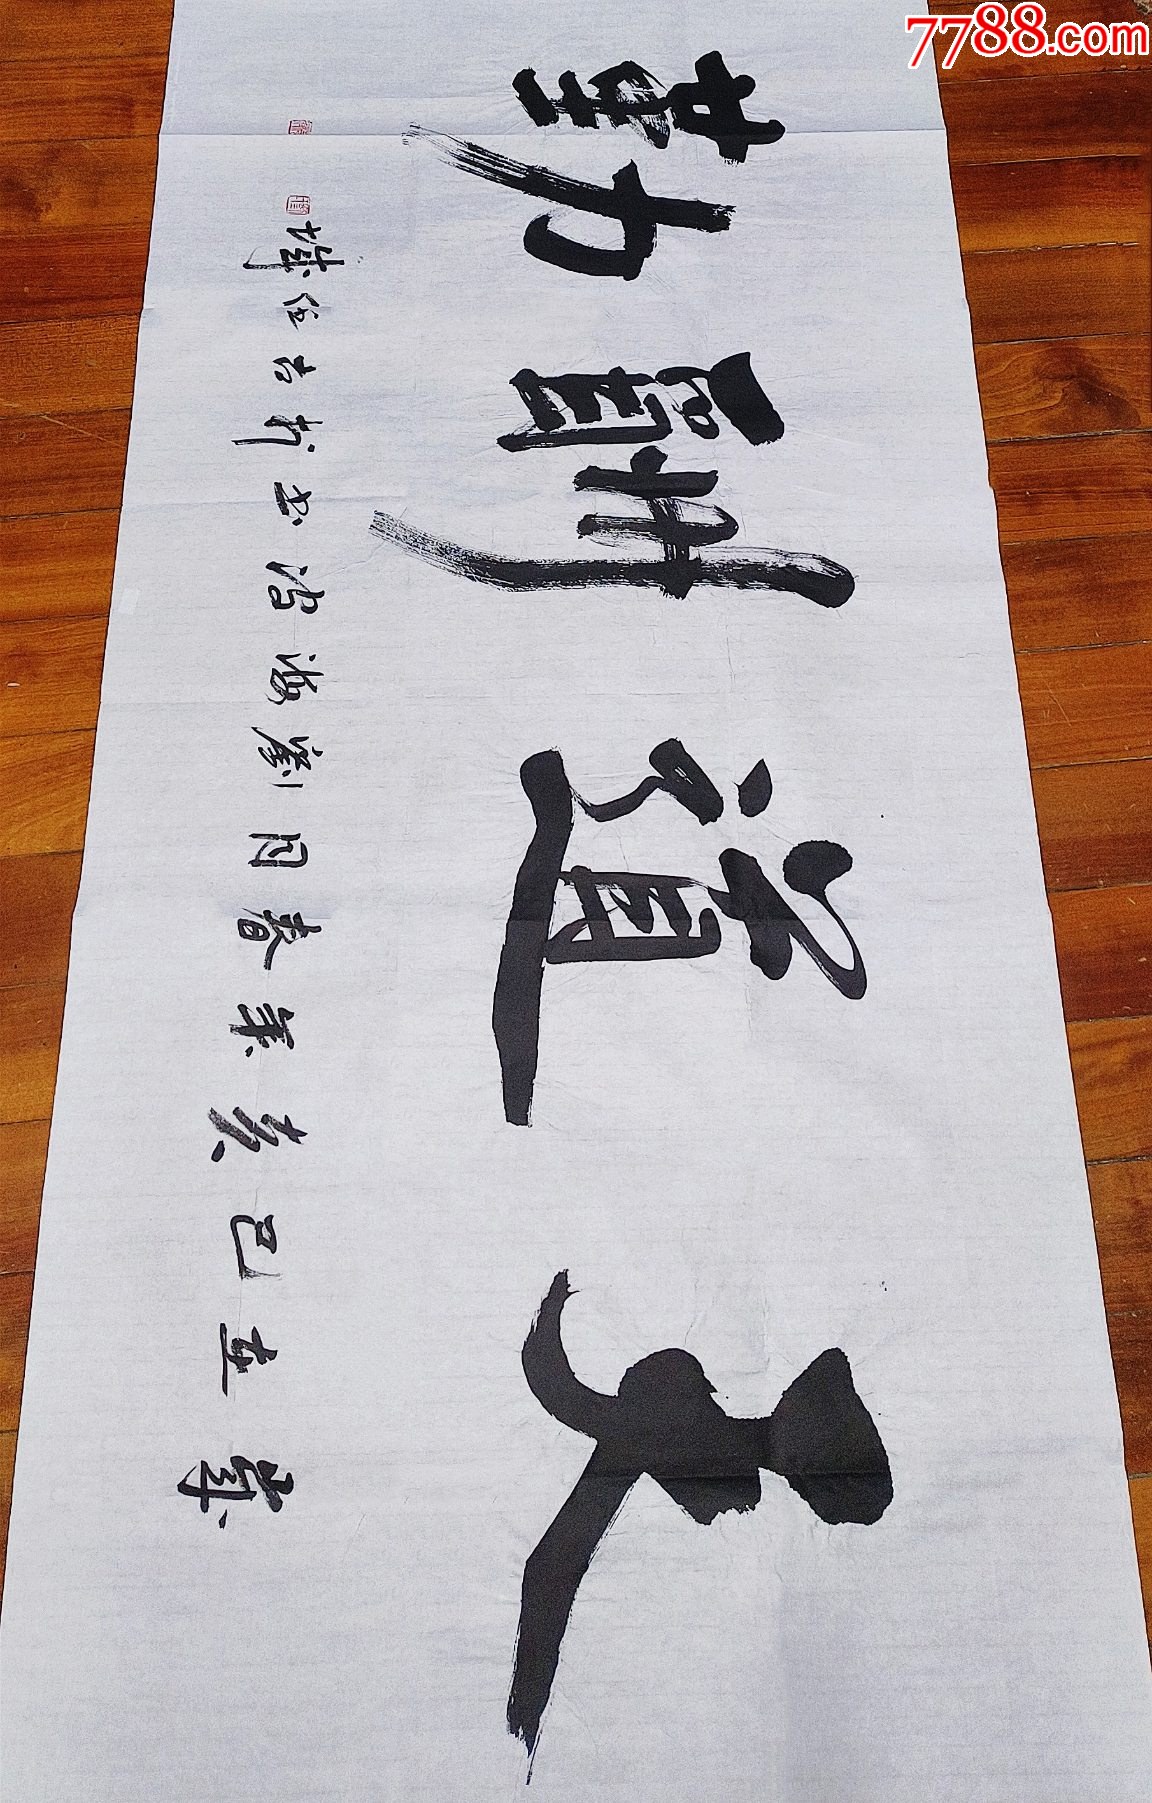 天道酬勤
歲在己亥年春月劉海書於古任城
7788.com